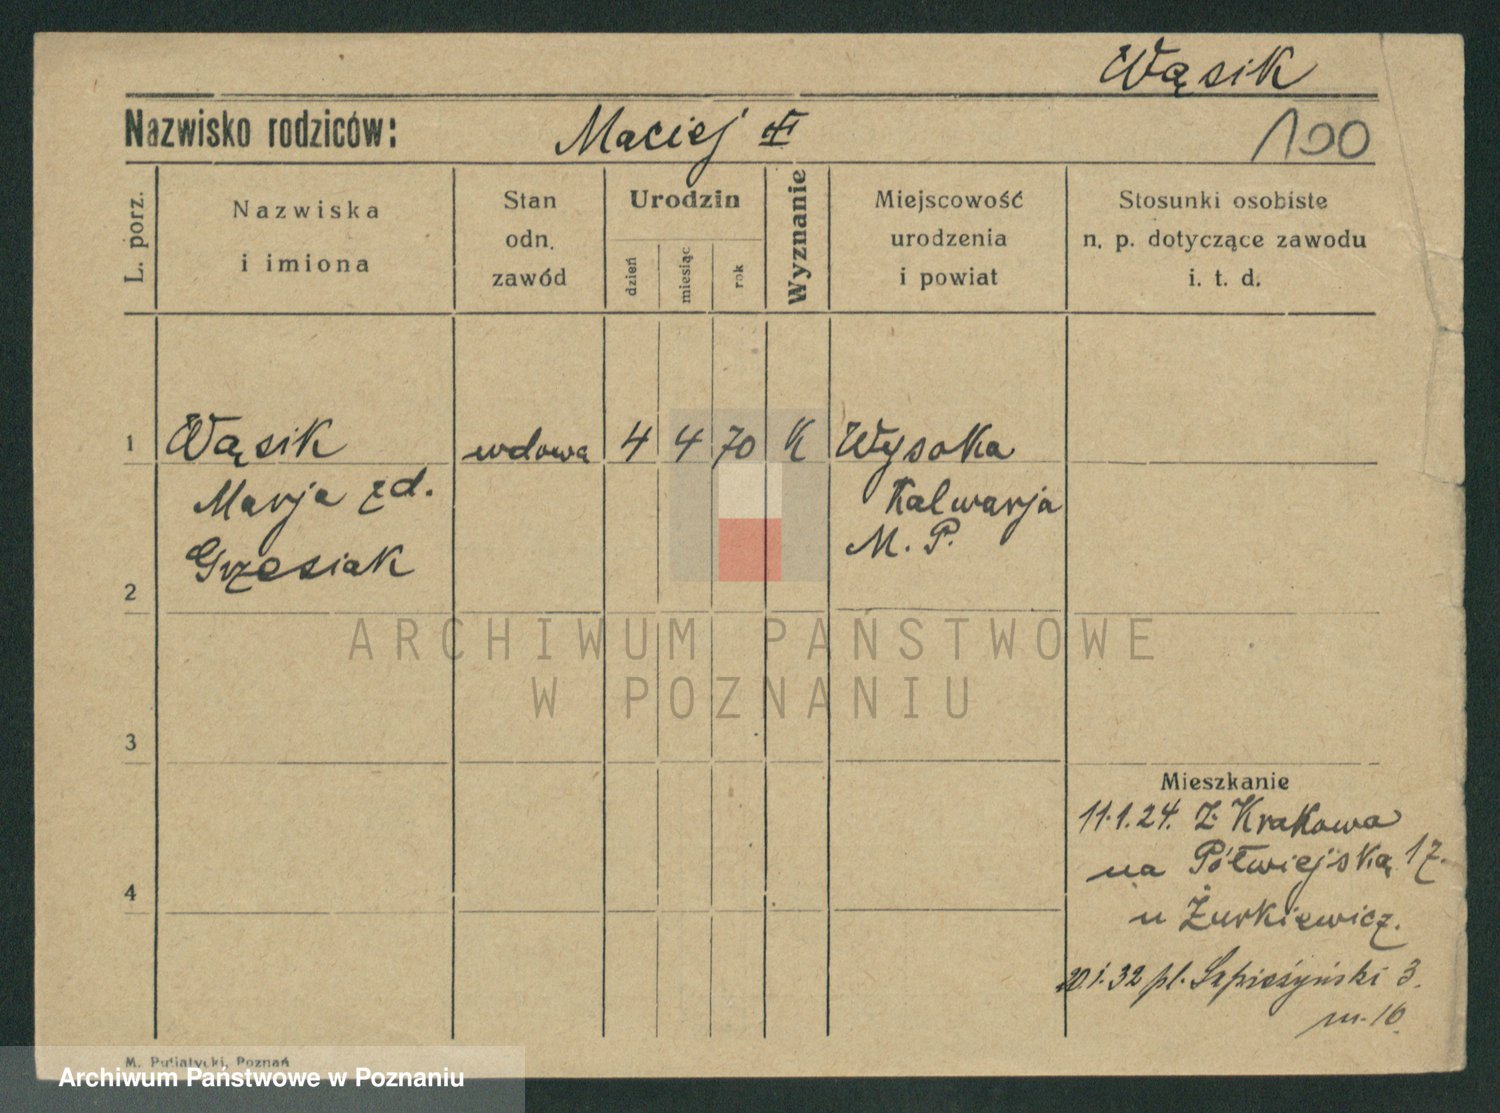 Wąsik
Nazwisko rodziców: Maciej
100
L. porz.
Nazwiska
i imiona
Stan
odn.
zawód
Urodzin
dzień
miesiąc
rok
Wyznanie
Miejscowość
urodzenia
i powiat
Stosunki osobiste
n. p. dotyczące zawodu
i. t. d.
1 Wąsik wdowa 4 4 70 K Wysoka
Marja zd. Kalwarja
Grzesiak M. P.
2
ARCHIWUM PAŃSTWOWE
W POZNANIU
3
Mieszkanie
11.1.24. Z Krakowa
na Półwiejską 17.
u Żurkiewicz.
4
20.1.32 pl. Sapieżyński 3.
m. 16.
M. Putiatycki, Poznań
Archiwum Państwowe w Poznaniu